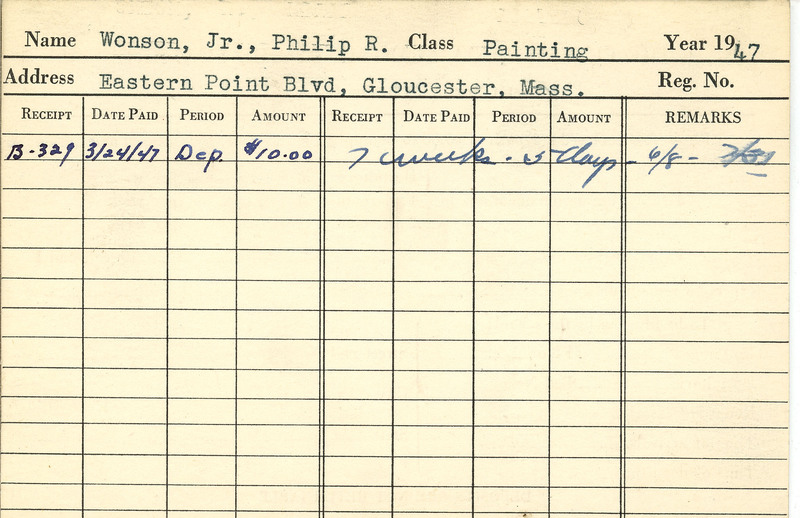 Name Wonson, Jr., Philip R. Class Painting Year 1947
Address Eastern Point Blvd, Gloucester, Mass. Reg. No.
RECEIPT DATE PAID PERIOD AMOUNT RECEIPT DATE PAID PERIOD AMOUNT REMARKS
B-329 3/24/47 Dep. $10.00 7 weeks - 5 days - 6/8 -